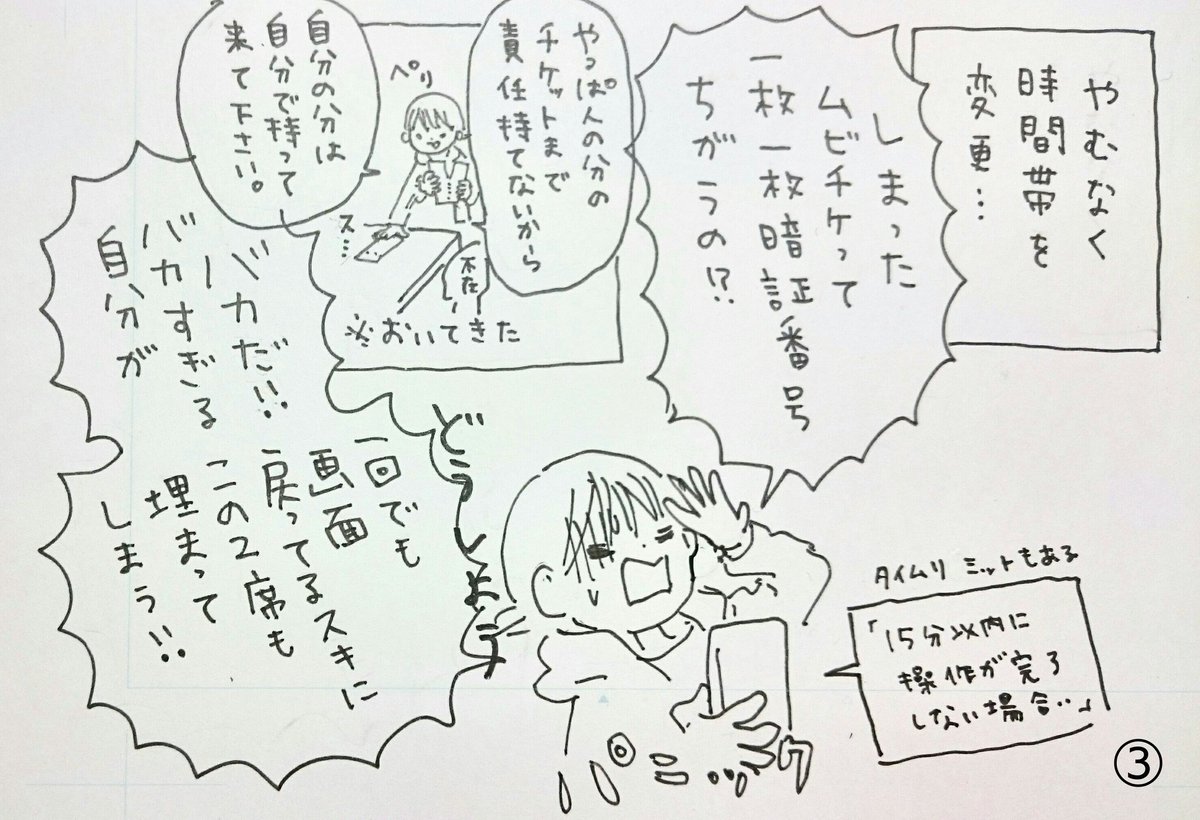 やむなく
時間帯を
変更…
しまった
ムビチケって
一枚一枚暗証番号
ちがうの!?
やっぱ人の分の
チケットまで
責任持てないから
自分の分は
自分で持って
来て下さい。
ペリ
ス…
不在
※おいてきた
バカだ!!
バカすぎる
自分が
どうしよう
一回でも
画面
戻ってるスキに
この2席も
埋まって
しまう!!
タイムリミットもある
「15分以内に
操作が完了
しない場合‥」
パニック
③